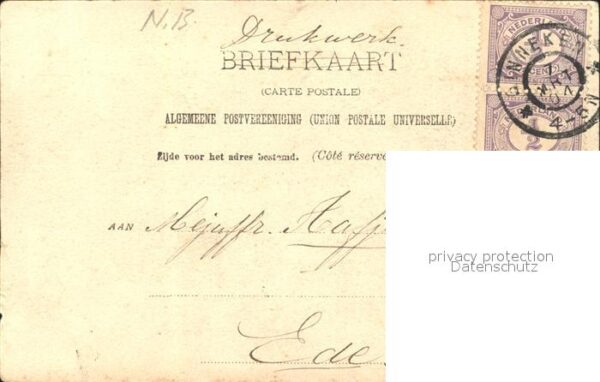 N.B
Drukwerk.
BRIEFKAART
(CARTE POSTALE)
ALGEMEENE POSTVEREENIGING (UNION POSTALE UNIVERSELLE)
Zijde voor het adres bestemd. (Côté réservé
NEDERLAND
CENT
1/2
GINNEKEN
4-5N
privacy protection
Datenschutz
AAN Mejuffr.
Ede